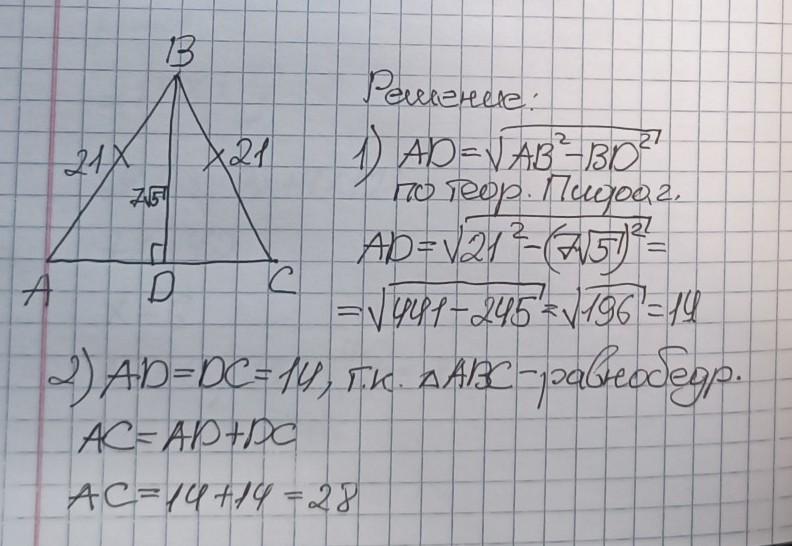 B
21
21
7√5
A
D
C
Решение:
1) AD=√AB²-BD²
по теор. Пифаг.
AD=√21²-(7√5)²=
=√441-245=√196=14
2) AD=DC=14, т.к. △ABC-равнобедр.
AC=AD+DC
AC=14+14=28